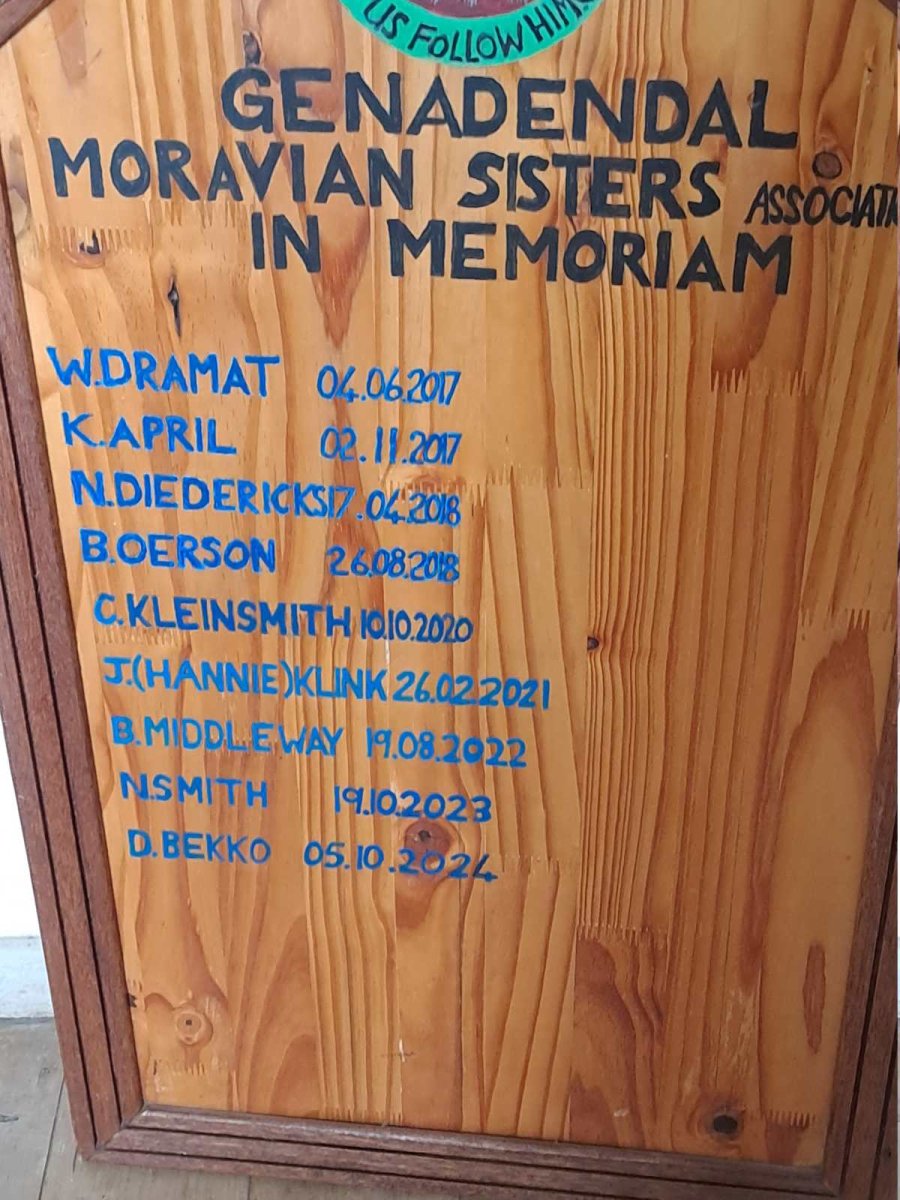 US FOLLOW HIM
GENADENDAL
MORAVIAN SISTERS ASSOCIATI
IN MEMORIAM
W.DRAMAT 04.06.2017
K.APRIL 02.11.2017
N.DIEDERICKS 17.04.2018
B.OERSON 26.08.2018
C.KLEINSMITH 10.10.2020
J.(HANNIE)KLINK 26.02.2021
B.MIDDLEWAY 19.08.2022
N.SMITH 19.10.2023
D.BEKKO 05.10.2024